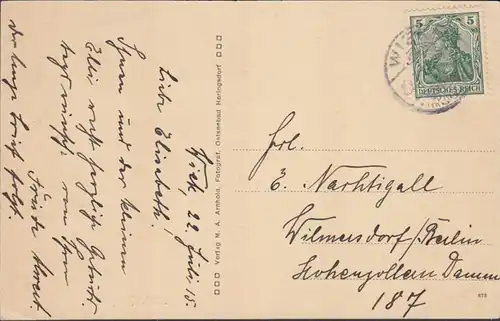 Wiek, 22. Juli 15.
Liebe Elisabeth!
Ihnen und der kleinen
Elli recht herzliche Geburts-
tagswünsche von Ihrer
Frieda
der lange Brief folgt.
Verlag M. A. Arnhold, Fotograf, Ostseebad Heringsdorf
5 5
DEUTSCHES REICH
WI
Frl.
E. Nachtigall
Wilmersdorf/Berlin
Hohenzollern Damm
187